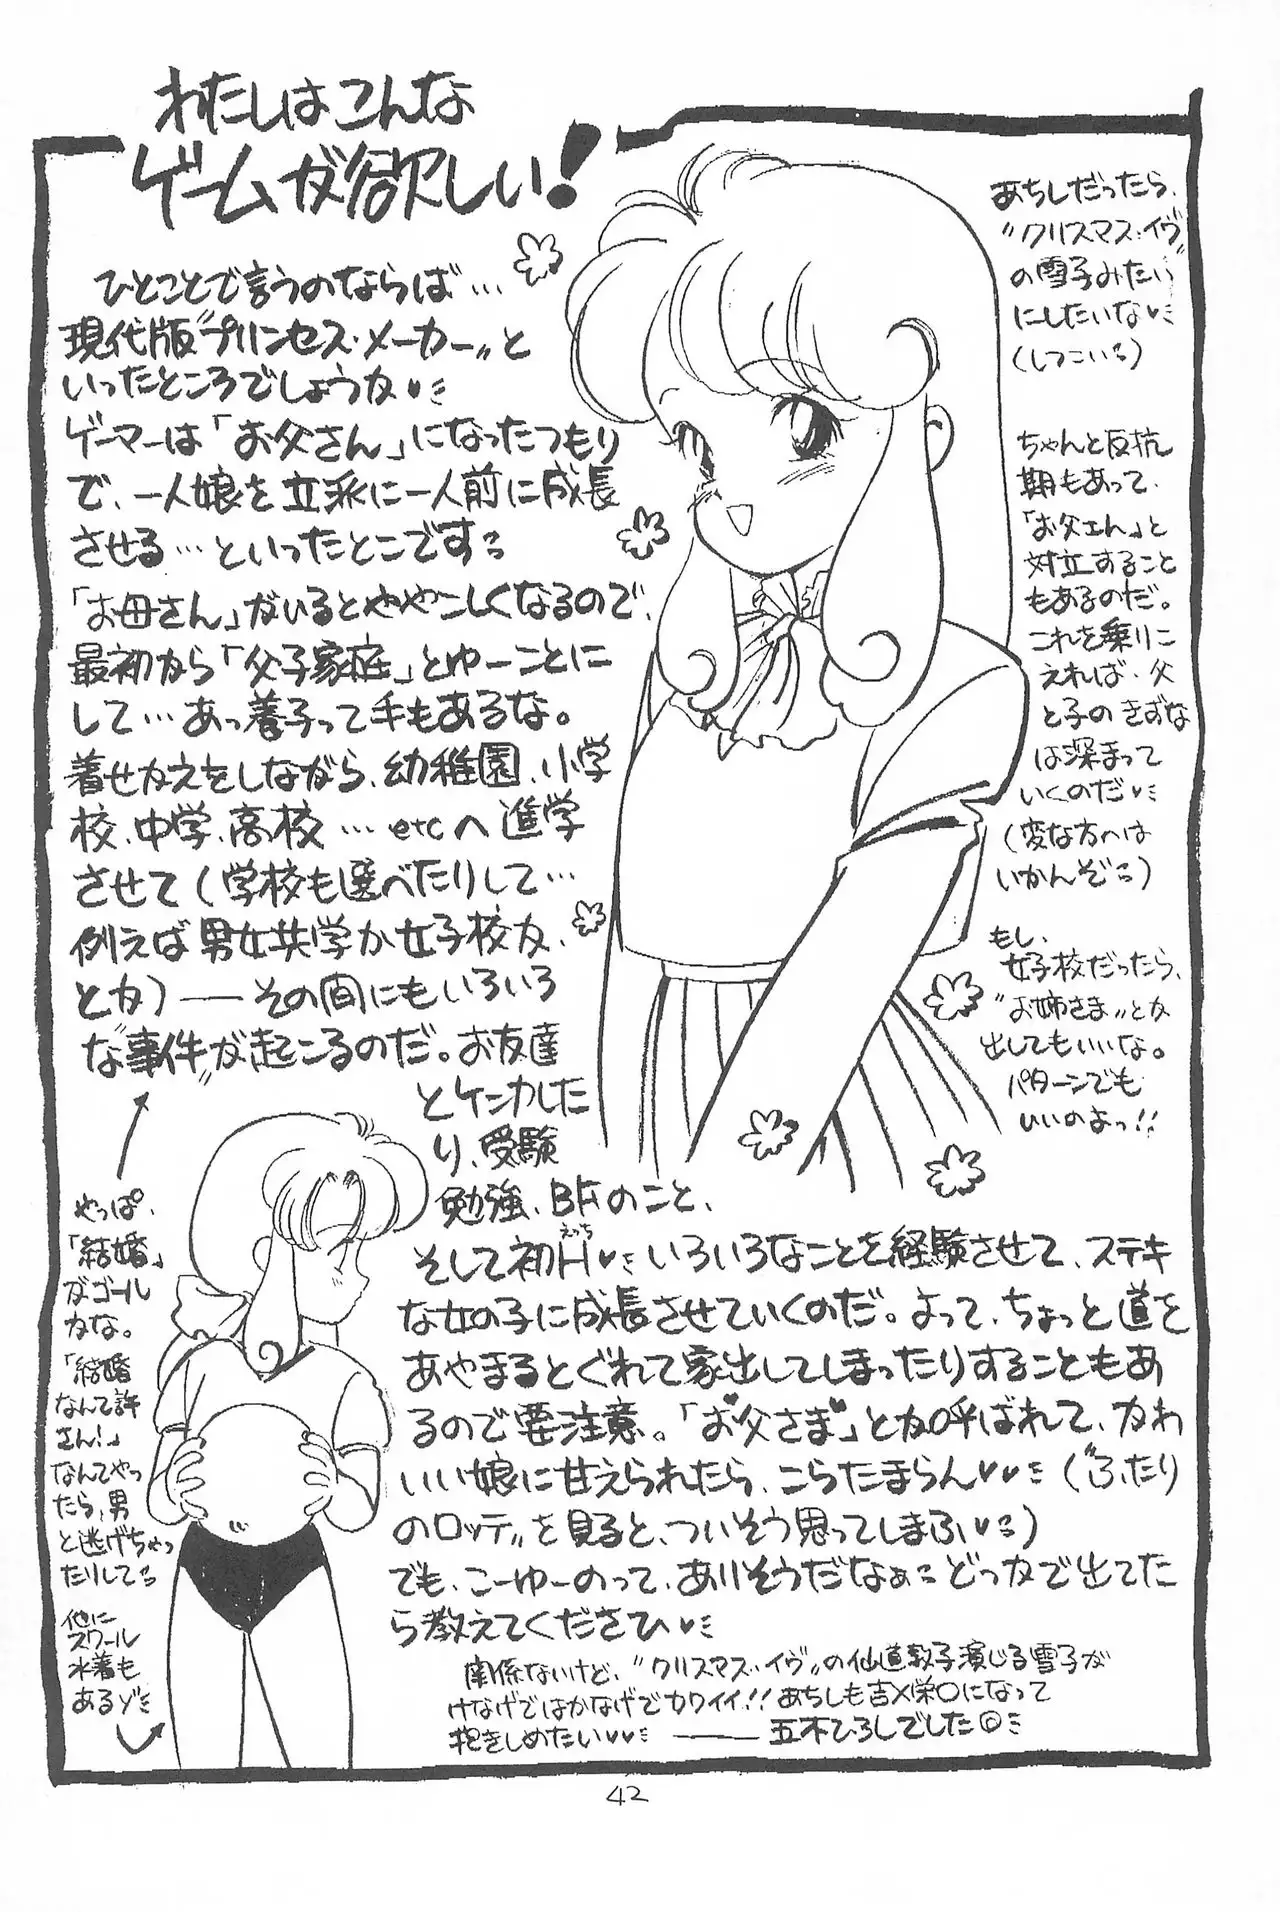 わたしはこんな
ゲームが欲しい!
ひとことで言うのならば…
現代版"プリンセス・メーカー"と
いったところでしょうか♥
ゲーマーは「お父さん」になったつもり
で、一人娘を立派に一人前に成長
させる…といったとこです
「お母さん」がいるとややこしくなるので、
最初から「父子家庭」とゆーことに
して…あっ養子って手もあるな。
着せかえをしながら、幼稚園、小学
校、中学、高校…etcへ進学
させて(学校も選べたりして…
例えば男女共学か女子校か、
とか)――その間にもいろいろ
な"事件"が起こるのだ。お友達
とケンカした
り、受験
勉強、BFのこと、
そして初H♥いろいろなことを経験させて、ステキ
えっち
な女の子に成長させていくのだ。よって、ちょっと道を
あやまるとぐれて家出してしまったりすることもあ
るので要注意。「お♥父さま♥」とか呼ばれて、かわ
いい娘に甘えられたら、こらたまらん♥♥("ふたり
のロッテ"を見ると、ついそう思ってしまふ♥)
でも、こーゆーのって、ありそうだなぁ どっかで出てた
ら教えてくださひ♥
関係ないけど、"クリスマス・イヴ"の仙道敦子演じる雪子が
けなげではかなげでカワイイ!!あちしも吉×栄〇になって
抱きしめたい♥♥――五木ひろしでした◎
あちしだったら、
"クリスマス・イヴ"
の雪子みたい
にしたいな♥
(しつこい)
ちゃんと反抗
期もあって、
「お父さん」と
対立すること
もあるのだ。
これを乗りこ
えれば、父
と子のきずな
は深まって
いくのだ♥
(変な方へは
いかんぞ)
もし、
女子校だったら、
"お姉さま"とか
出してもいいな。
パターンでも
いいのよっ!!
やっぱ、
「結婚」
がゴール
かな。
「結婚
なんて許
さん!」
なんてやっ
たら、男
と逃げちゃっ
たりして
他に
スクール
水着も
あるゾ
42